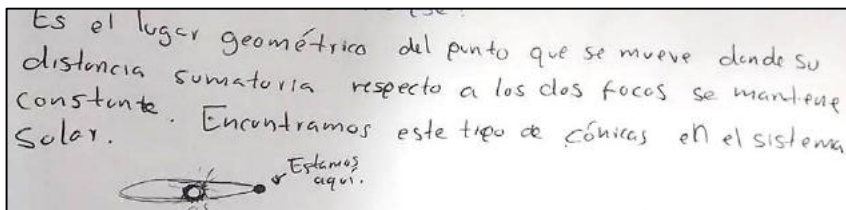 Es el lugar geométrico del punto que se mueve donde su
distancia sumatoria respecto a los dos focos se mantiene
constante. Encontramos este tipo de cónicas en el sistema
Solar.
Estamos
aquí.